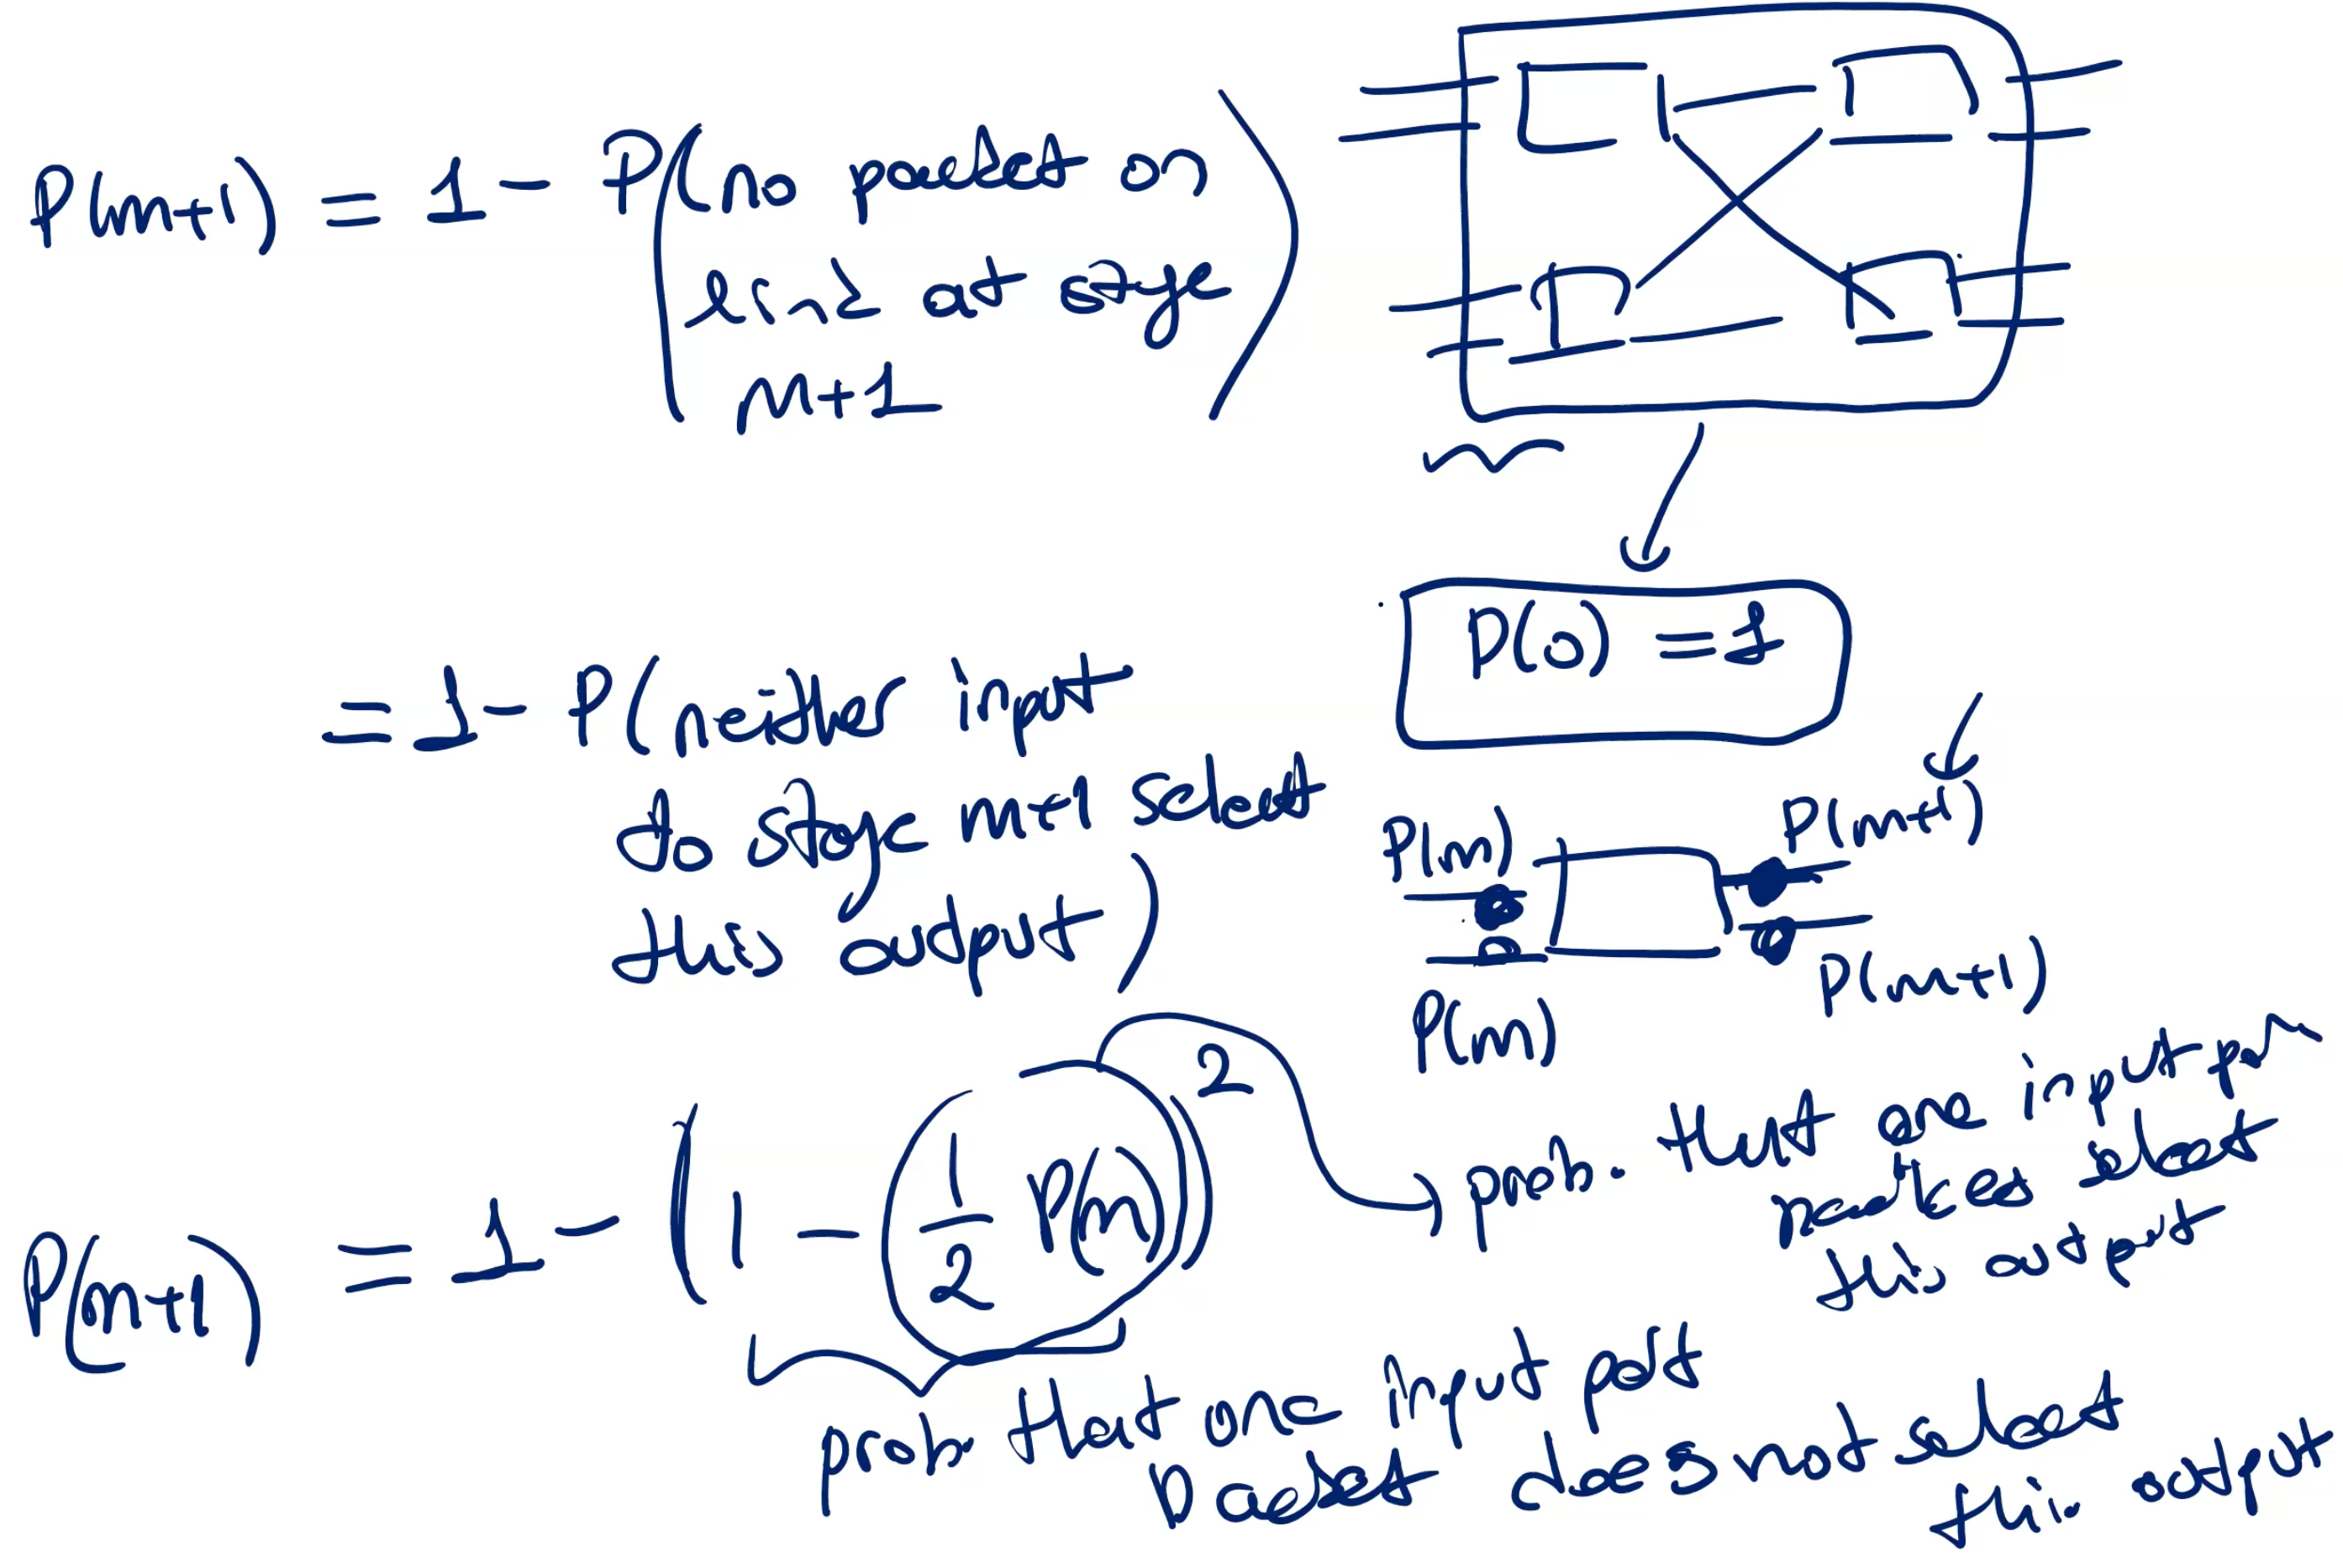 P(m+1) = 1 - P(no packet on
link at stage
m+1)
P(0) = 1
= 1 - P(neither input
to stage m+1 select
this output)
P(m)
P(m+1)
P(m)
P(m+1)
P(m+1) = 1 - (1 - 1/2 P(m))^2
prob. that one input port
packet select
this output
prob. that one input port
packet does not select
this output